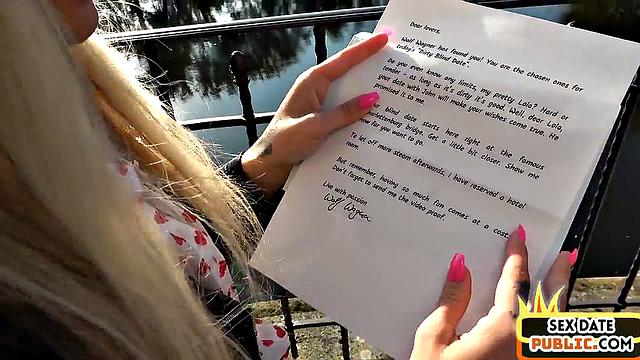 Dear lovers,
Wolf Wagner has found you! You are the chosen ones for
today's "Dirty Blind Date".
Do you even know any limits, my pretty Lola? Hard or
tender - as long as it's dirty it's good. Well, dear Lola,
your date with John will make your wishes come true. He
promised it to me.
blind date starts here right at the famous
bridge. Get a little bit closer. Show me
how far you want to go.
To let off more steam afterwards, I have reserved a hotel
room.
But remember, having so much fun comes at a cost
Don't forget to send me the video proof.
Live with passion
Wolf Wagner
SEX DATE
PUBLIC.COM